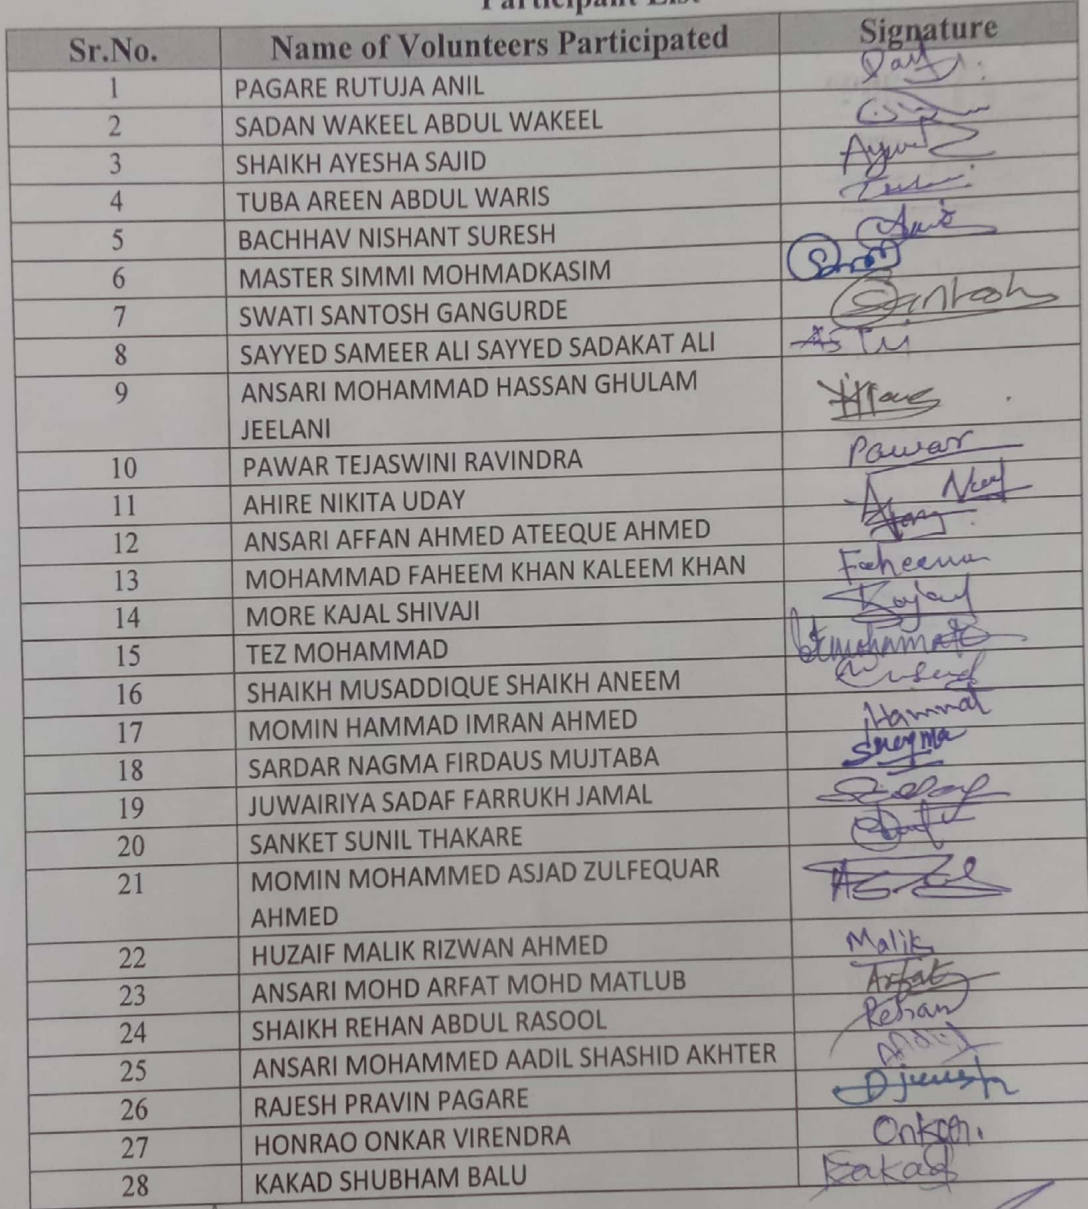 Participant List
Sr.No. Name of Volunteers Participated Signature
1 PAGARE RUTUJA ANIL
2 SADAN WAKEEL ABDUL WAKEEL
3 SHAIKH AYESHA SAJID
4 TUBA AREEN ABDUL WARIS
5 BACHHAV NISHANT SURESH
6 MASTER SIMMI MOHMADKASIM
7 SWATI SANTOSH GANGURDE Santosh
8 SAYYED SAMEER ALI SAYYED SADAKAT ALI
9 ANSARI MOHAMMAD HASSAN GHULAM
JEELANI
10 PAWAR TEJASWINI RAVINDRA Pawar
11 AHIRE NIKITA UDAY
12 ANSARI AFFAN AHMED ATEEQUE AHMED
13 MOHAMMAD FAHEEM KHAN KALEEM KHAN Faheem
14 MORE KAJAL SHIVAJI Kajal
15 TEZ MOHAMMAD
16 SHAIKH MUSADDIQUE SHAIKH ANEEM
17 MOMIN HAMMAD IMRAN AHMED Hammad
18 SARDAR NAGMA FIRDAUS MUJTABA
19 JUWAIRIYA SADAF FARRUKH JAMAL
20 SANKET SUNIL THAKARE
21 MOMIN MOHAMMED ASJAD ZULFEQUAR
AHMED
22 HUZAIF MALIK RIZWAN AHMED Malik
23 ANSARI MOHD ARFAT MOHD MATLUB Arfat
24 SHAIKH REHAN ABDUL RASOOL Rehan
25 ANSARI MOHAMMED AADIL SHASHID AKHTER
26 RAJESH PRAVIN PAGARE
27 HONRAO ONKAR VIRENDRA Onkar
28 KAKAD SHUBHAM BALU Kakad